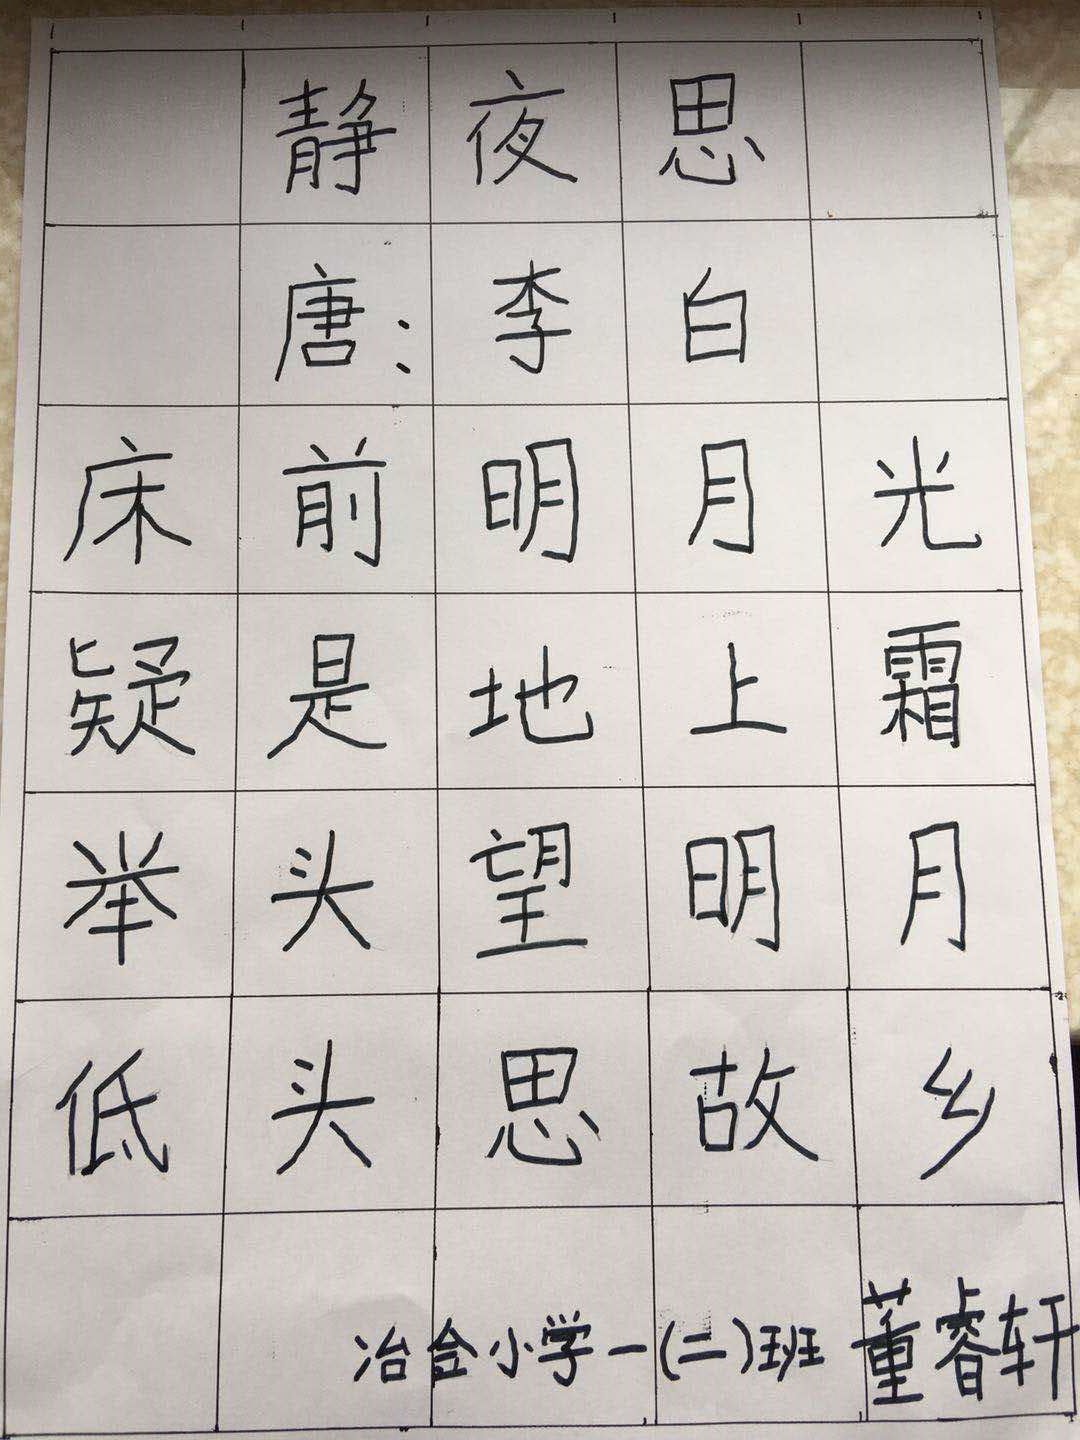 静夜思
唐：李白
床前明月光
疑是地上霜
举头望明月
低头思故乡
冶合小学一(二)班 董睿轩